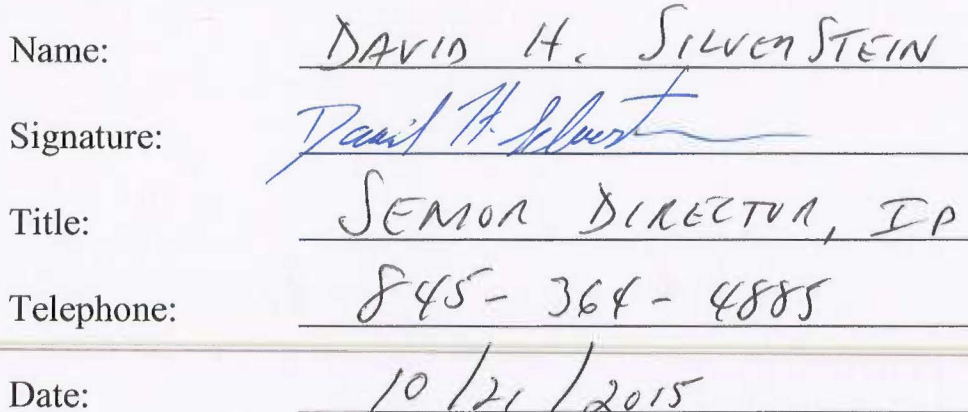 Name: DAVID H. SILVERSTEIN
Signature: David H. Silverstein
Title: SENIOR DIRECTOR, IP
Telephone: 845-364-4885
Date: 10/21/2015